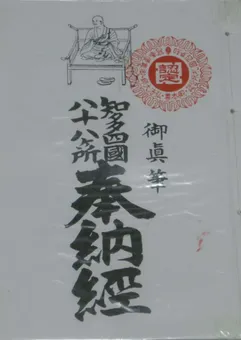 御真筆
知多四國
八十八ヶ所
奉納經